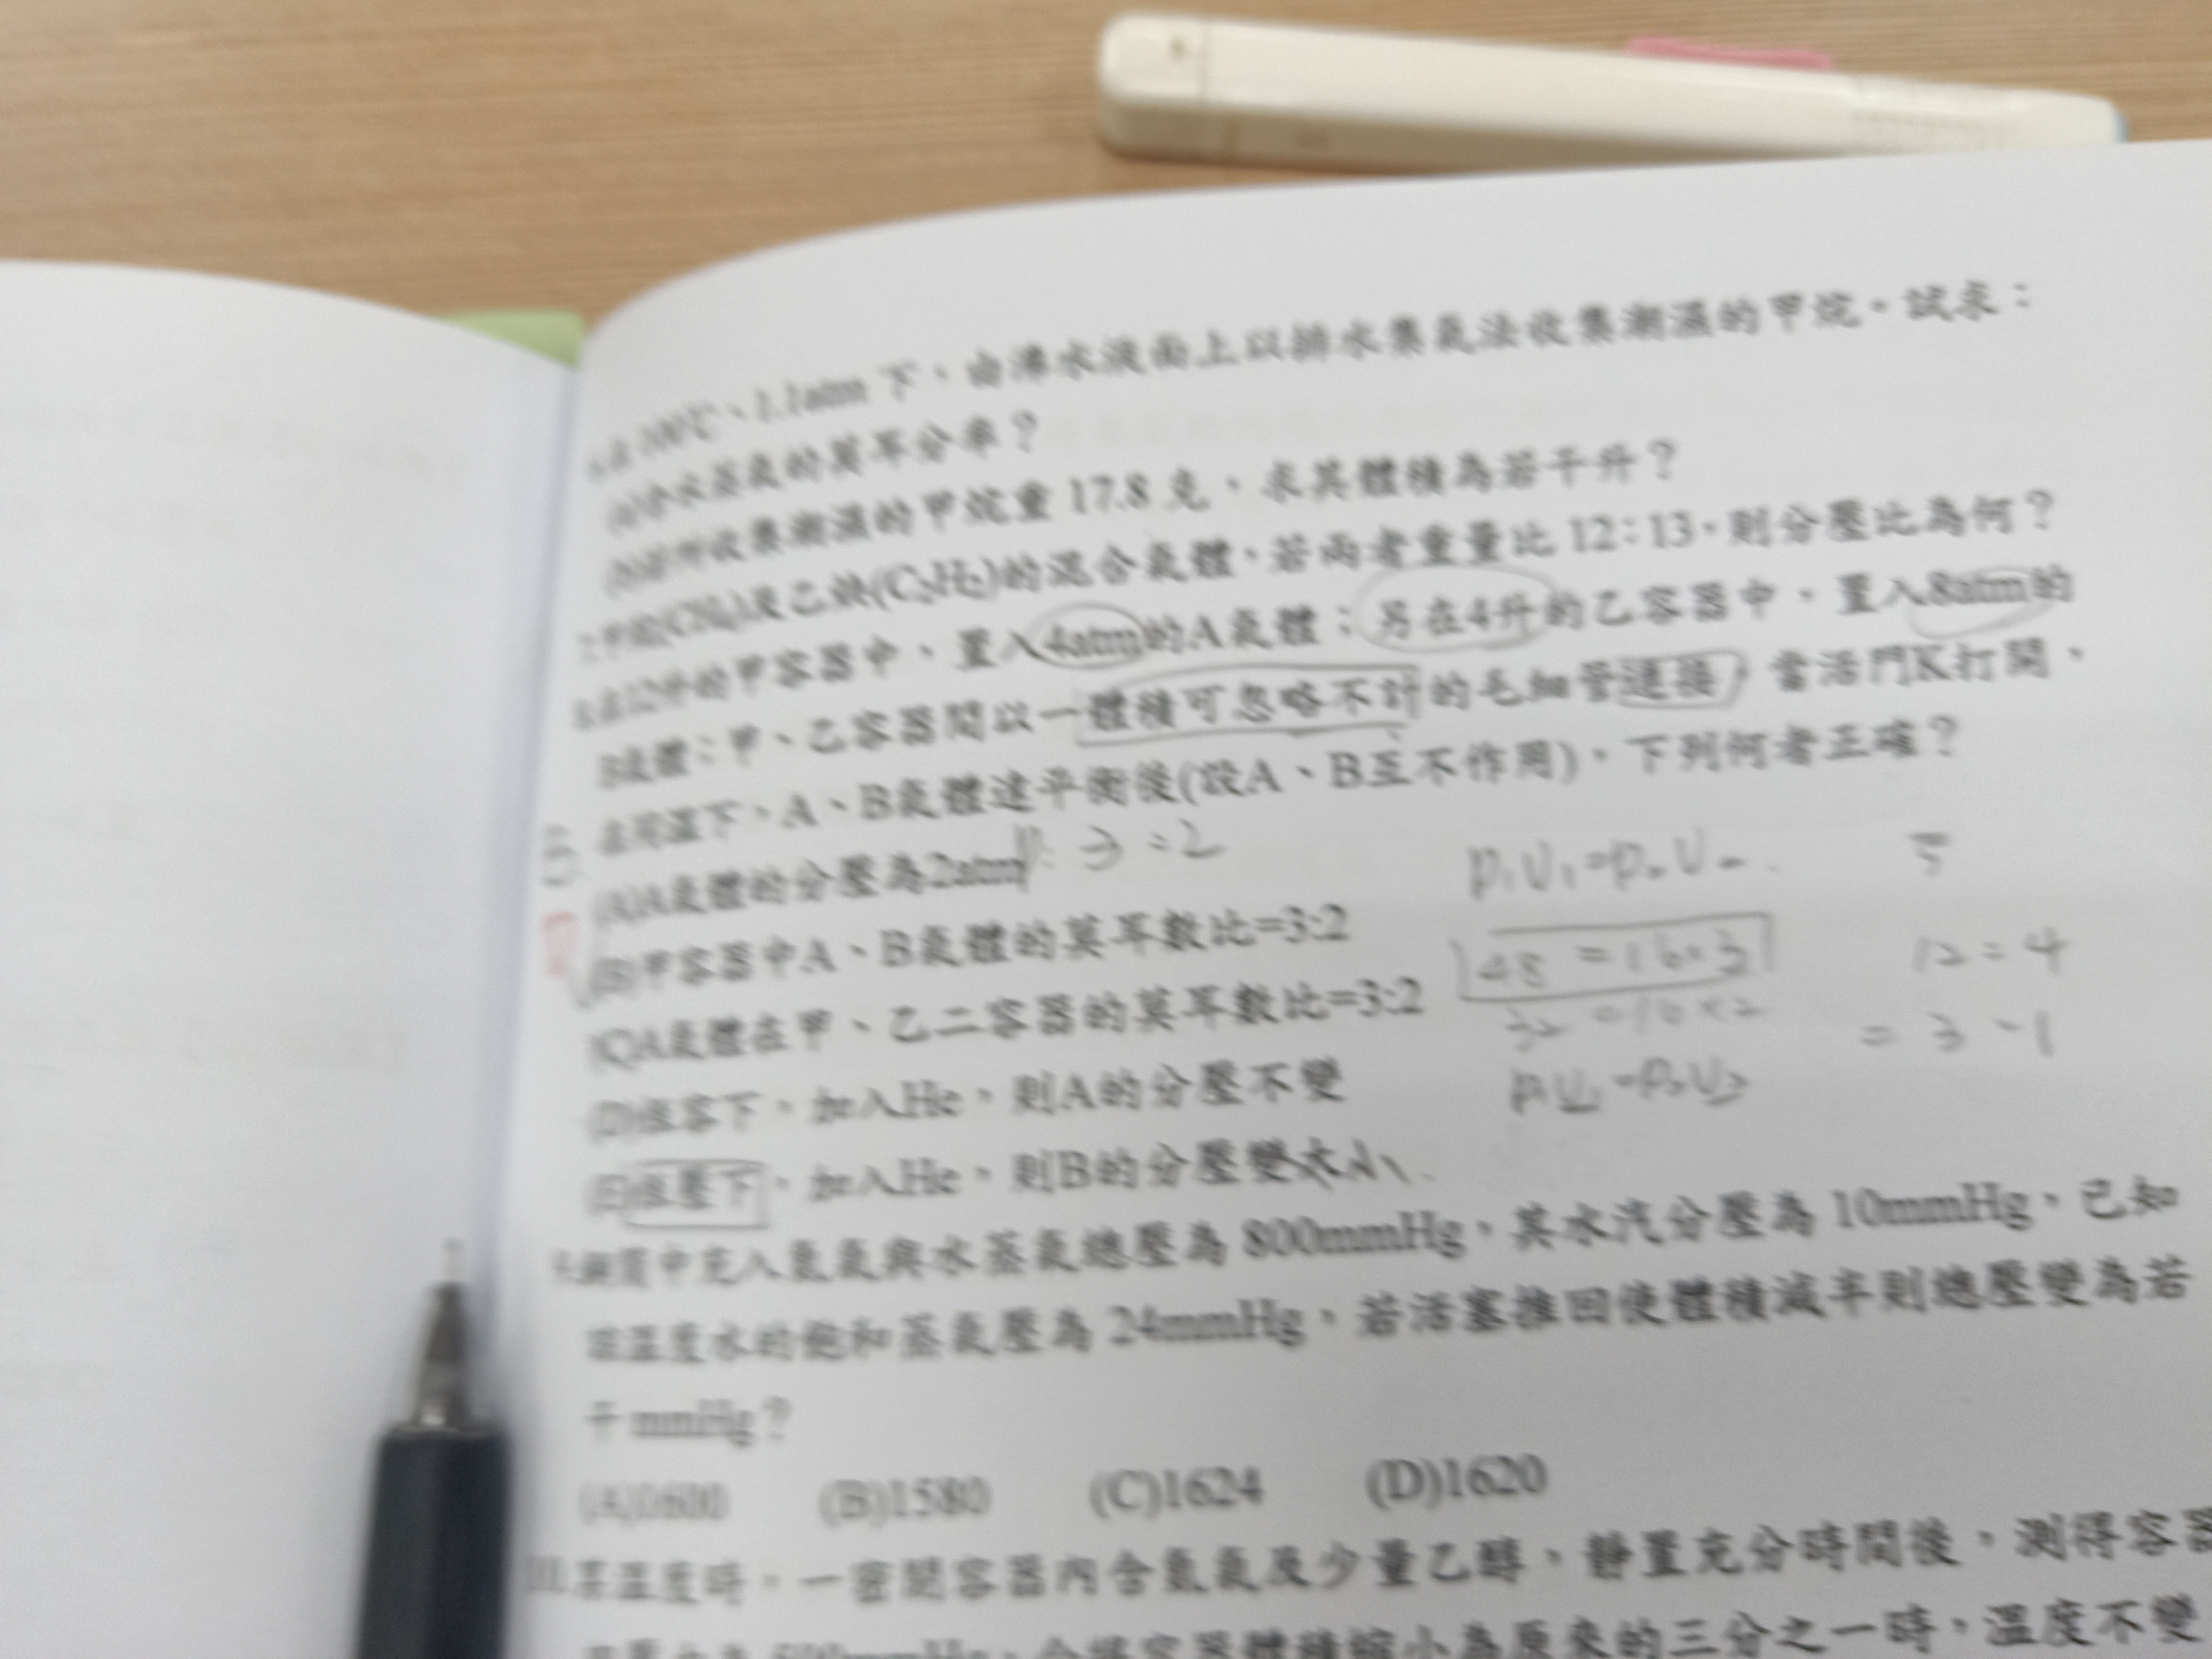 6.在 100℃、1.1atm 下,由沸水液面上以排水集氣法收集潮濕的甲烷。試求:
(a)含水蒸氣的莫耳分率?
(b)若所收集潮濕的甲烷重 17.8 克,求其體積為若干升?
7.甲烷(CH₄)及乙炔(C₂H₂)的混合氣體,若兩者重量比 12:13,則分壓比為何?
8.在12升的甲容器中,置入4atm的A氣體;另在4升的乙容器中,置入8atm的
B氣體;甲、乙容器間以一體積可忽略不計的毛細管連接,當活門K打開,
在同溫下,A、B氣體達平衡後(設A、B互不作用),下列何者正確?
(A)A氣體的分壓為2atm 3:2
P₁V₁=P₂V₂
(B)甲容器中A、B氣體的莫耳數比=3:2
48=16×3
12:4
(C)A氣體在甲、乙二容器的莫耳數比=3:2
32=16×2
=3:1
(D)恆容下,加入He,則A的分壓不變
P₁V₁=P₂V₂
(E)恆壓下,加入He,則B的分壓變大小
9.鋼筒中充入氮氣與水蒸氣總壓為 800mmHg,其水汽分壓為 10mmHg,已知
該溫度水的飽和蒸氣壓為 24mmHg,若活塞推回使體積減半則總壓變為若
干 mmHg?
(A)0600 (B)1580 (C)1624 (D)1620
10.某溫度時,一密閉容器內含氮氣及少量乙醇,靜置充分時間後,測得容器
600mmHg,今將容器體積縮小為原來的三分之一時,溫度不變